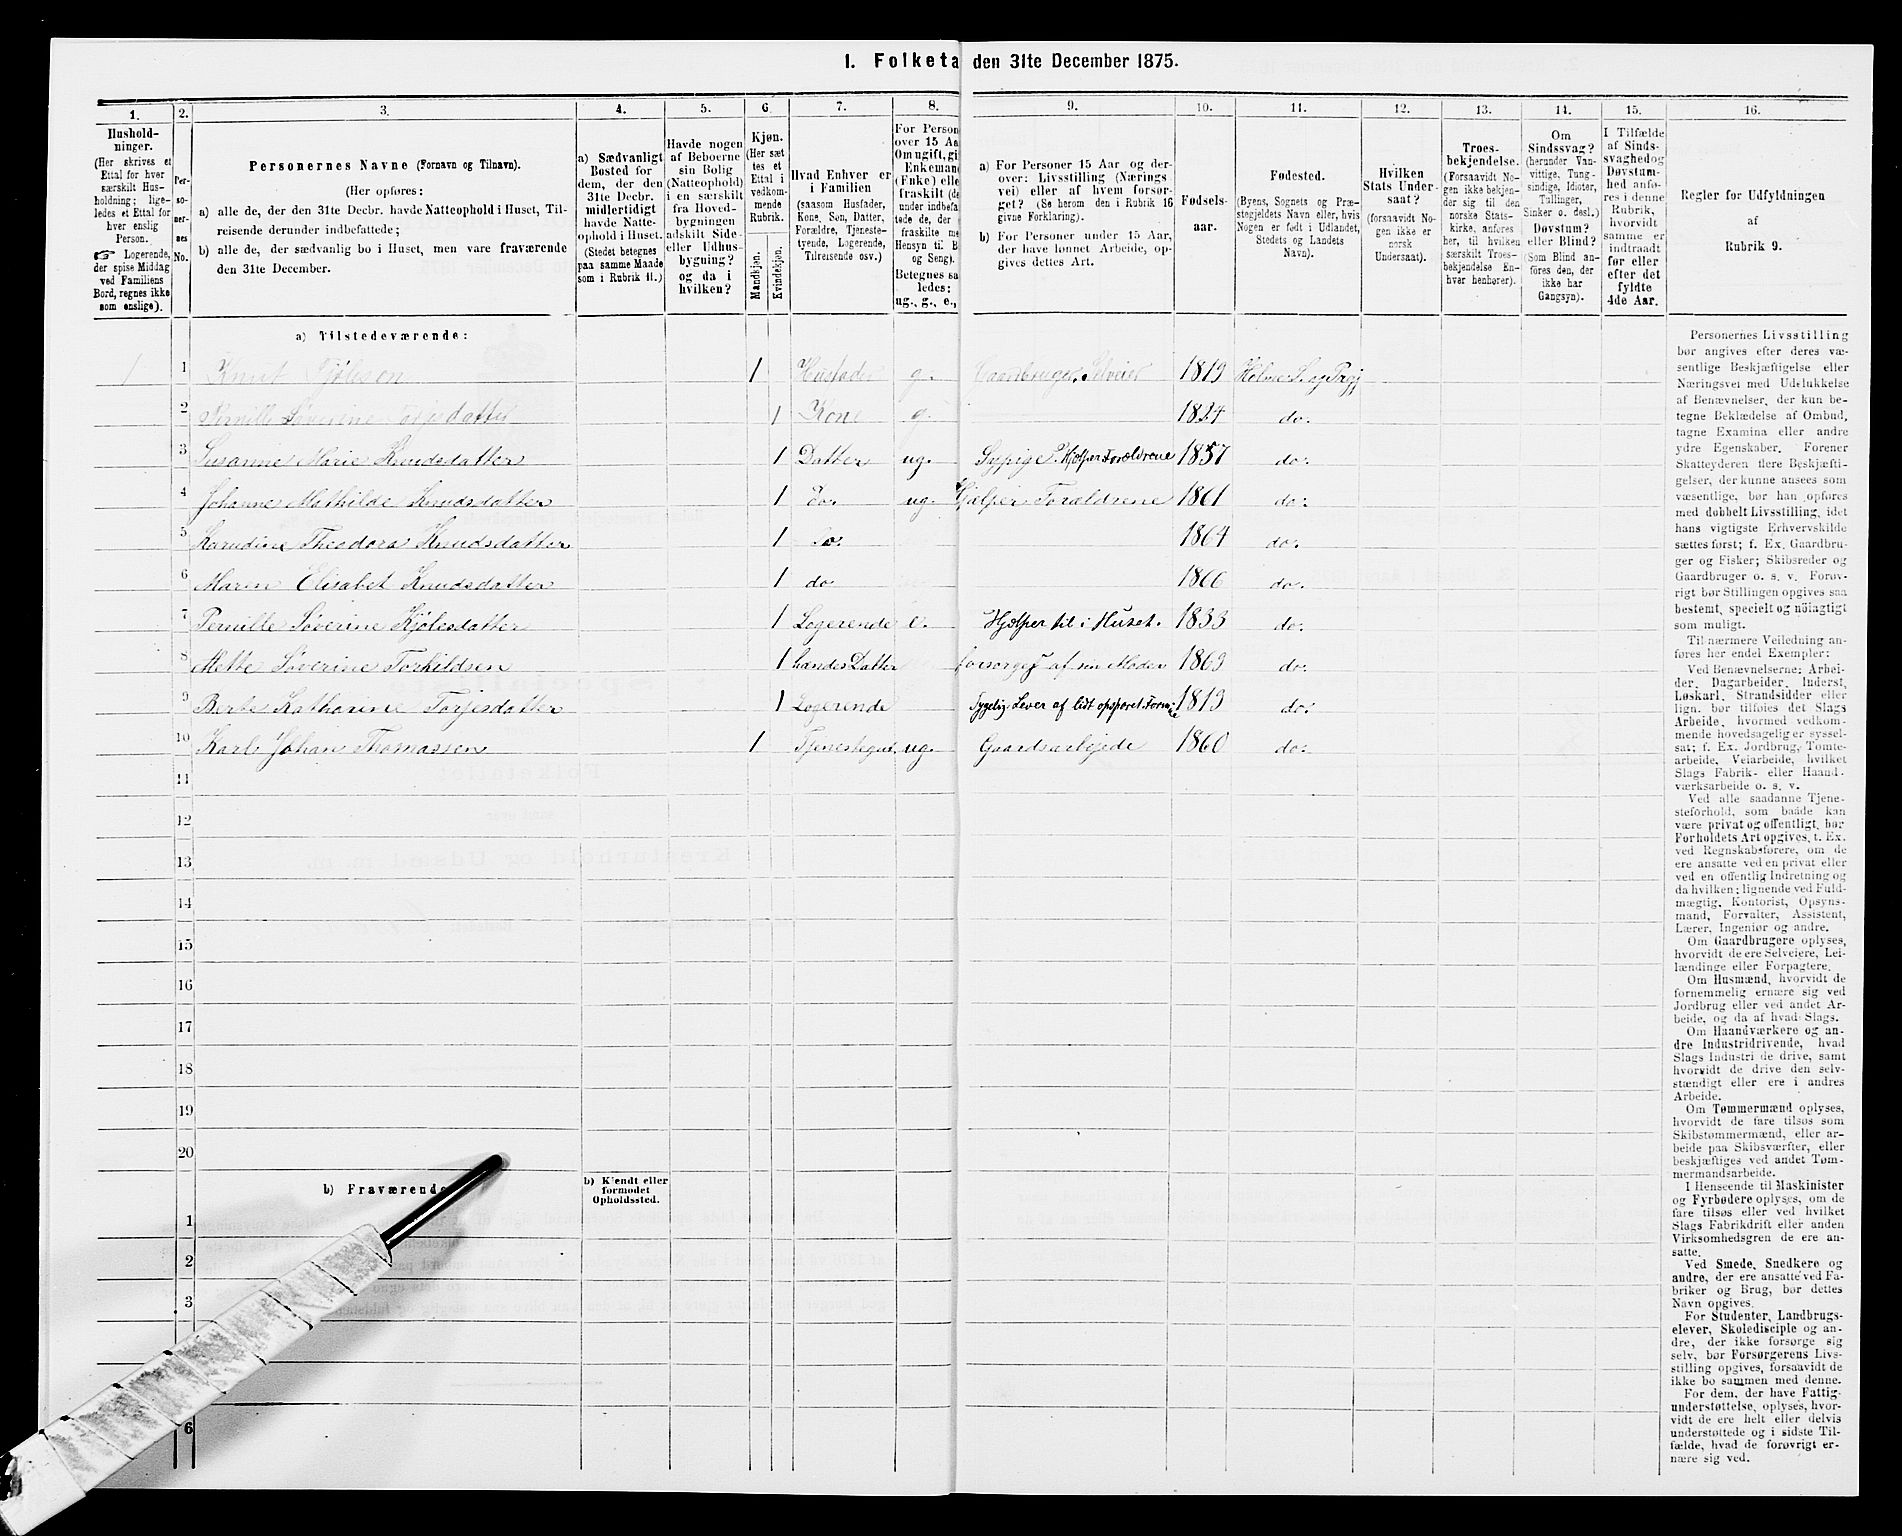 I. Folketa den 31te December 1875.
1.
2.
3.
4.
5.
6.
7.
8.
9.
10.
11.
12.
13.
14.
15.
16.
Hushold-
ninger.
(Her skrives et
Ettal for hver
særskilt Hus-
holdning; lige-
ledes et Ettal for
hver enslig
Person.
☞ Logerende,
der spise Middag
ved Familiens
Bord, regnes ikke
som enslige).
Per-
so-
ner-
nes
No.
Personernes Navne (Fornavn og Tilnavn).
(Her opføres:
a) alle de, der den 31te Decbr. havde Natteophold i Huset, Til-
reisende derunder indbefattede;
b) alle de, der sædvanlig bo i Huset, men vare fraværende
den 31te December.
a) Sædvanligt
Bosted for
dem, der den
31te Decbr.
midlertidigt
havde Natte-
ophold i Huset.
(Stedet betegnes
paa samme Maade
som i Rubrik 11.)
Havde nogen
af Beboerne
sin Bolig
(Natteophold)
i en særskilt
fra Hoved-
bygningen
adskilt Side-
eller Udhus-
bygning?
og da i
hvilken?
Kjøn.
(Her sæt
tes et
Ettal i
vedkom-
mende
Rubrik.
Mandkjøn.
Kvindekjøn.
Hvad Enhver er
i Familien
(saasom Husfader,
Kone, Søn, Datter,
Forældre, Tjeneste-
tyende, Logerende,
Tilreisende osv.)
For Person
over 15 Aa
Om ugift, gi
Enkeman
(Enke) elle
fraskilt (de
under indbefa
tede de, der
fraskilte me
Hensyn til B
og Seng).
Betegnes sa
ledes:
ug., g., e.,
a) For Personer 15 Aar og der-
over: Livsstilling (Nærings
vei) eller af hvem forsør-
get? (Se herom den i Rubrik 16
givne Forklaring).
b) For Personer under 15 Aar,
der have lønnet Arbeide, op-
gives dettes Art.
Fødsels-
aar.
Fødested.
(Byens, Sognets og Præ-
stegjeldets Navn eller, hvis
Nogen er født i Udlandet,
Stedets og Landets
Navn).
Hvilken
Stats Under-
saat?
(forsaavidt No-
gen ikke er
norsk
Undersaat).
Troes-
bekjendelse.
(Forsaavidt No-
gen ikke bekjen-
der sig til den
norske Stats-
kirke, anføres
her, til hvilken
særskilt Troes-
bekjendelse En-
hver henhører).
Om
Sindssvag?
(herunder Van-
vittige, Tung-
sindige, Idioter,
Tullinger,
Sinker o. desl.)
Døvstum?
eller Blind?
(Som Blind an-
føres den, der
ikke har
Gangsyn).
I Tilfælde
af Sinds-
svaghedog
Døvstum-
hed anfø-
res i denne
Rubrik,
hvorvidt
samme er
indtraadt
før eller
efter det
fyldte
4de Aar.
Regler for Udfyldningen
af
Rubrik 9.
a) Tilstedeværende:
1 1 Knut 1 Husfader g. Gaardbruger, Selveier 1819 Holme S. og Prgj
2 Pernille Søverine Torjesdatter 1 Kone g. 1824 do.
3 Susanne Marie Knudsdatter 1 Datter ug. Sypige. Hjelper Forældrene 1857 do.
4 Johanne Mathilde Knudsdatter 1 do. ug. Hjælper Forældrene 1861 do.
5 Karudine Theodora Knudsdatter 1 do. 1864 do.
6 Maren Elisabet Knudsdatter 1 do 1866 do.
7 Pernille Søverine Kjølesdatter 1 Logerende e. Hjælper til i Huset. 1833 do.
8 Mette Søverine Torkildsen 1 hendes Datter forsørges af sin Moder 1869 do.
9 Berte Katharine Torjesdatter 1 Logerende Sygelig Lever af lidt opsparet Formue 1819 do.
10 Karl Johan Thomassen 1 Tjenestegut ug. Gaardsarbejde 1860 do.
11
12
13
14
15
16
17
18
19
20
b) Fraværende
b) Kjendt eller
formodet
Opholdssted.
1
2
3
6
Personernes Livsstilling
bør angives efter deres væ-
sentlige Beskjæftigelse eller
Næringsvei med Udelukkelse
af Benævnelser, der kun be-
tegne Beklædelse af Ombud,
tagne Examina eller andre
ydre Egenskaber. Forener
Skatteyderen flere Beskjæfti-
gelser, der kunne ansees som
væsentlige, bør han opføres
med dobbelt Livsstilling, idet
hans vigtigste Erhvervskilde
sættes først; f. Ex. Gaardbru-
ger og Fisker; Skibsreder og
Gaardbruger o. s. v. Forøv-
rigt bør Stillingen opgives saa
bestemt, specielt og nöiagtigt
som muligt.
Til nærmere Veiledning an-
føres her endel Exempler:
Ved Benævnelserne: Arbei-
der, Dagarbeider, Inderst,
Løskarl, Strandsidder eller
lign. bør tilføies det Slags
Arbeide, hvormed vedkom-
mende hovedsagelig er syssel-
sat; f. Ex. Jordbrug, Tomte-
arbeide, Veiarbeide, hvilket
Slags Fabrik- eller Haand-
værksarbeide o. s. v.
Ved alle saadanne Tjene-
steforhold, som baade kan
være privat og offentligt, bør
Forholdets Art opgives, t. Ex.
ved Regnskabsførere, om de
ere ansatte ved en privat eller
ved en offentlig Indretning og
da hvilken; lignende ved Fuld-
mægtig, Kontorist, Opsyns-
mand, Forvalter, Assistent,
Lærer, Ingeniør og andre.
Om Gaardbrugere oplyses,
hvorvidt de ere Selveiere, Lei-
lændinge eller Forpagtere.
Om Husmænd, hvorvidt de
fornemmelig ernære sig ved
Jordbrug eller ved andet Ar-
beide, og da af hvad Slags.
Om Haandværkere og an-
dre Industridrivende, hvad
Slags Industri de drive, samt
hvorvidt de drive den selv-
stændigt eller ere i andres
Arbeide.
Om Tømmermænd oplyses,
hvorvidt de fare tilsøs som
Skibstømmermænd, eller ar-
beide paa Skibsværfter, eller
beskjæftiges ved andet Tøm-
mermandsarbeide.
I Henseende til Maskinister
og Fyrbødere oplyses, om de
fare tilsøs eller ved hvilket
Slags Fabrikdrift eller anden
Virksomhedsgren de ere an-
satte.
Ved Smede, Snedkere og
andre, der ere ansatte ved Fa-
briker og Brug, bør dettes
Navn opgives.
For Studenter, Landbrugs-
elever, Skoledisciple og an-
dre, der ikke forsørge sig
selv, bør Forsørgerens Livs-
stilling opgives, forsaavidt de
ikke bo sammen med denne.
For dem, der have Fattig-
understøttelse, oplyses, hvor-
vidt de ere helt eller delvis
understøttede og i sidste Til-
fælde, hvad de forøvrigt er-
nære sig ved.